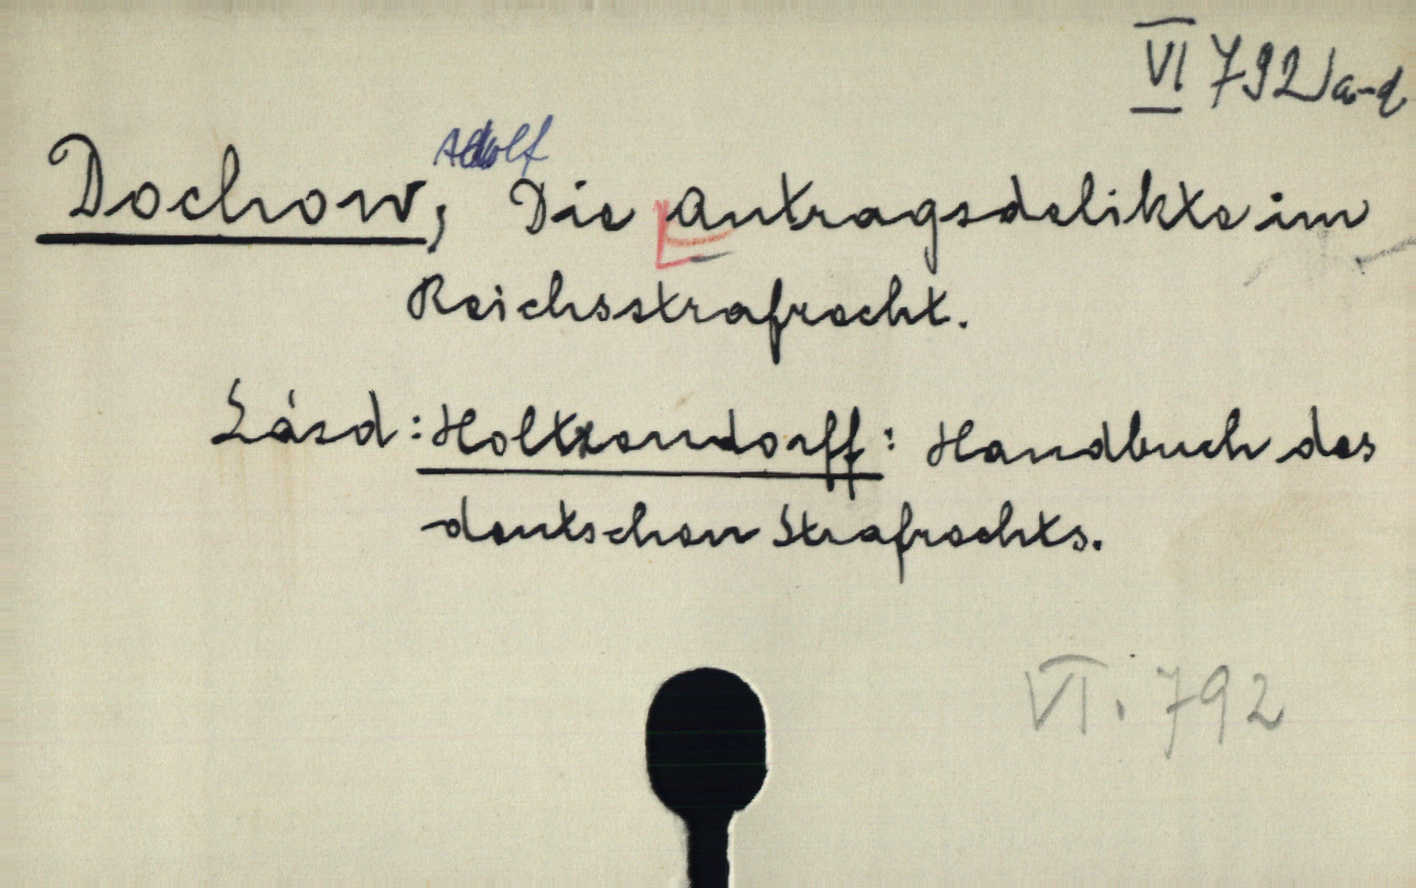 VI 792/a-d
Adolf
Dochow, Die Antragsdelikte im
Reichsstrafrecht.
Lásd: Holtzendorff: Handbuch des
deutschen Strafrechts.
VI. 792